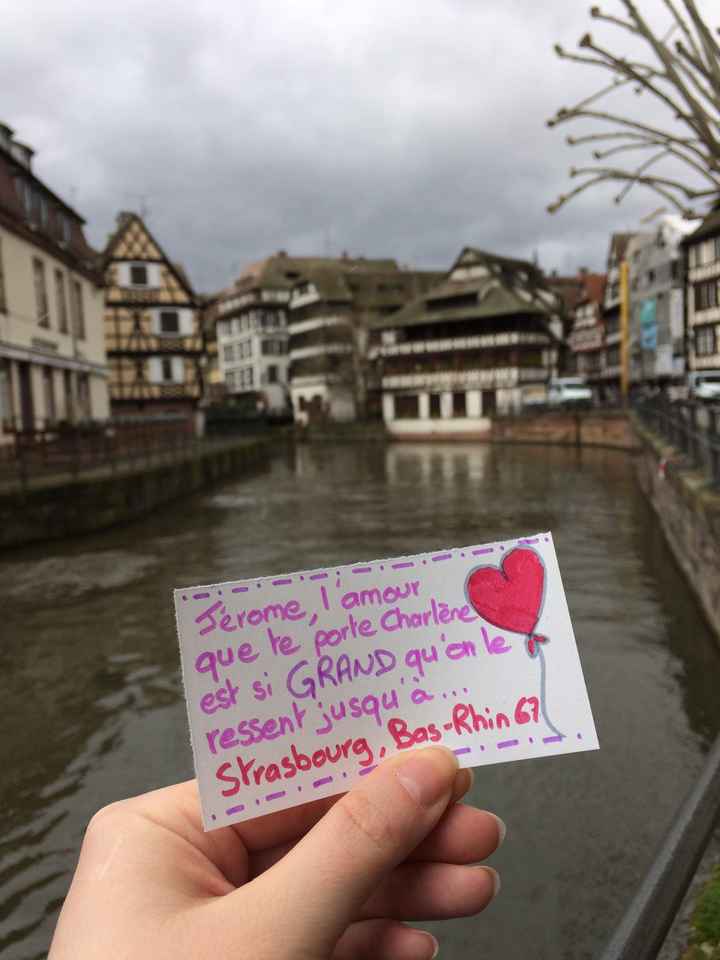 Jérome, l'amour
que te porte Charlène
est si GRAND qu'on le
ressent jusqu'à...
Strasbourg, Bas-Rhin 67